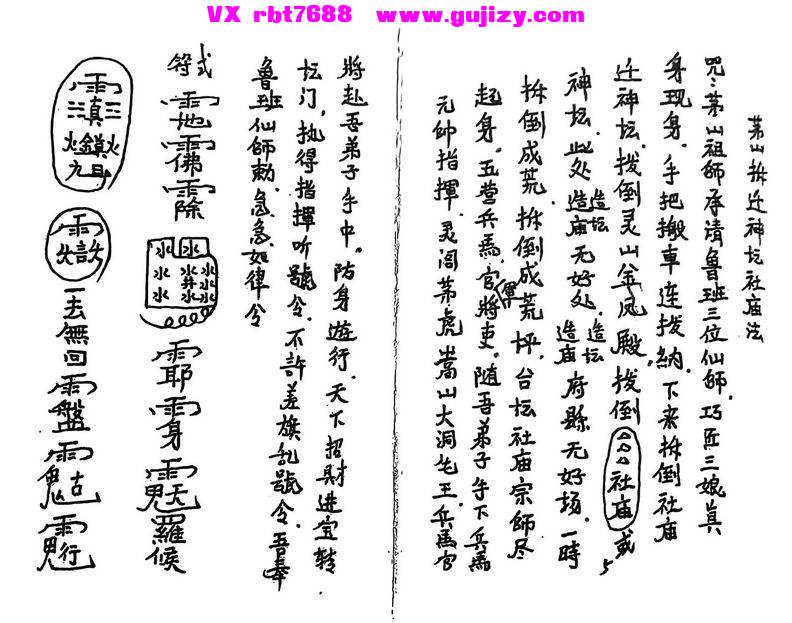 VX rbt7688 www.gujizy.com
茅山拆迁神坛社庙法
咒:茅山祖師承请鲁班三位仙師.巧匠三娘真
身现身.手把搬車连拨納.下来拆倒社庙
迁神坛.拨倒灵山金凤殿.拨倒△△△社庙或
神坛.此处造坛造庙无好处.造坛造庙府縣无好场.一時
拆倒成荒.拆倒成荒坪.台坛社庙宗師尽
起身.五营兵馬官將吏.随吾弟子手下兵馬
元帅指揮.灵阎茅虎嵩山大洞七王.兵馬官
將赴吾弟子手中。防身遊行.天下招財进宝转
坛门.执得指揮听號令.不許差旗乱號令.吾奉
鲁班仙師勅.急急如律令
符式
水水
水水水
水井水
水水水
羅候
一去無回